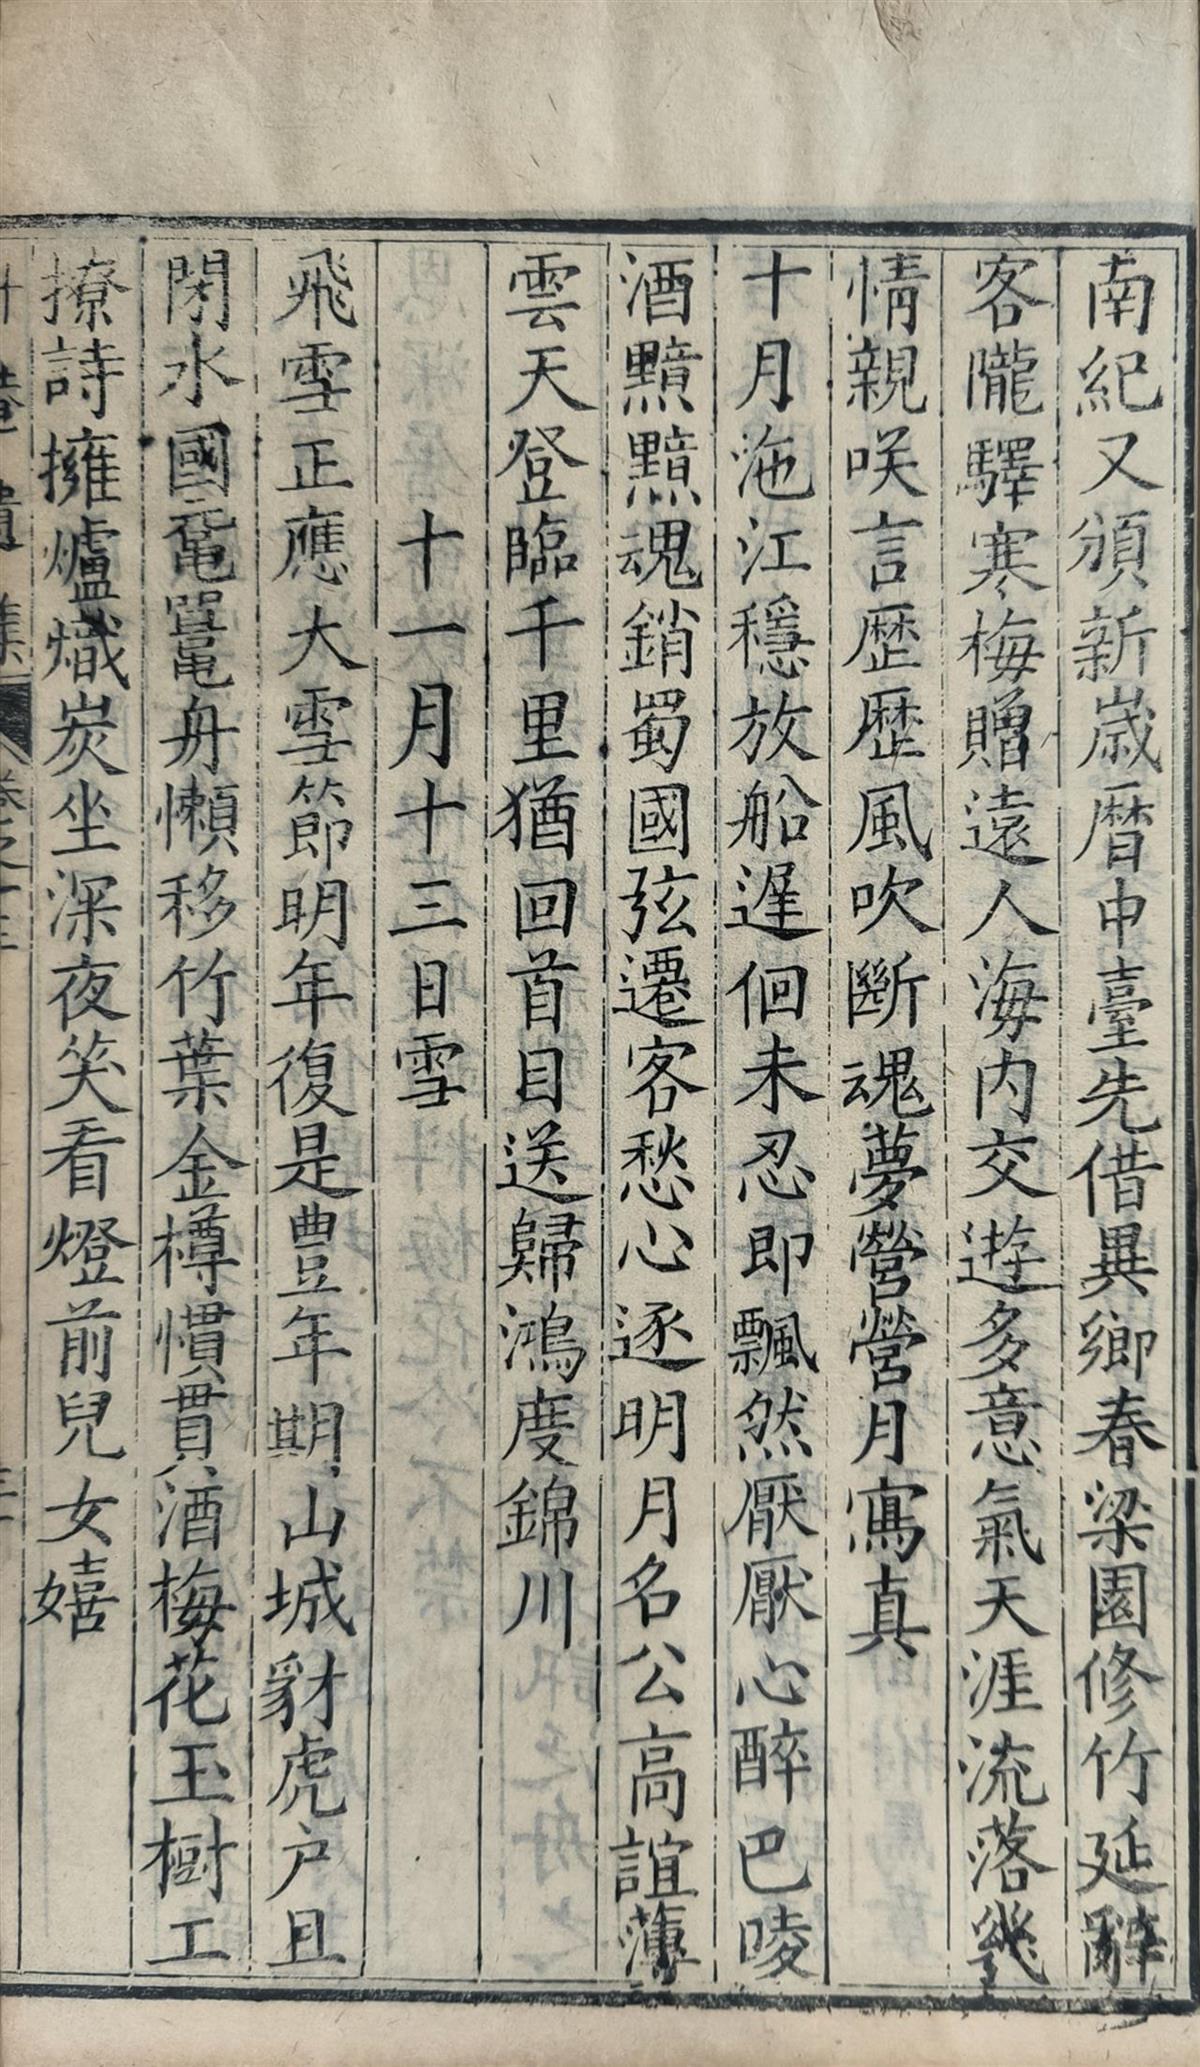 南紀又頒新嵗曆申臺先借異鄉春梁園修竹延辭
客隴驛寒梅贈遠人海内交遊多意氣天涯流落幾
情親咲言歴歴風吹斷魂夢營營月寫真
十月沲江穩放船遟佪未忍即飄然厭厭心醉巴陵
酒黯黯魂銷蜀國弦遷客愁心逐明月名公高誼薄
雲天登臨千里猶回首目送歸鴻度錦川
十一月十三日雪
飛雪正應大雪節明年復是豊年期山城豺虎户且
閉水國黿鼉舟懶移竹葉金樽慣貰酒梅花玉樹工
撩詩擁爐熾炭坐深夜笑看燈前兒女嬉
升菴遺集 卷之十三